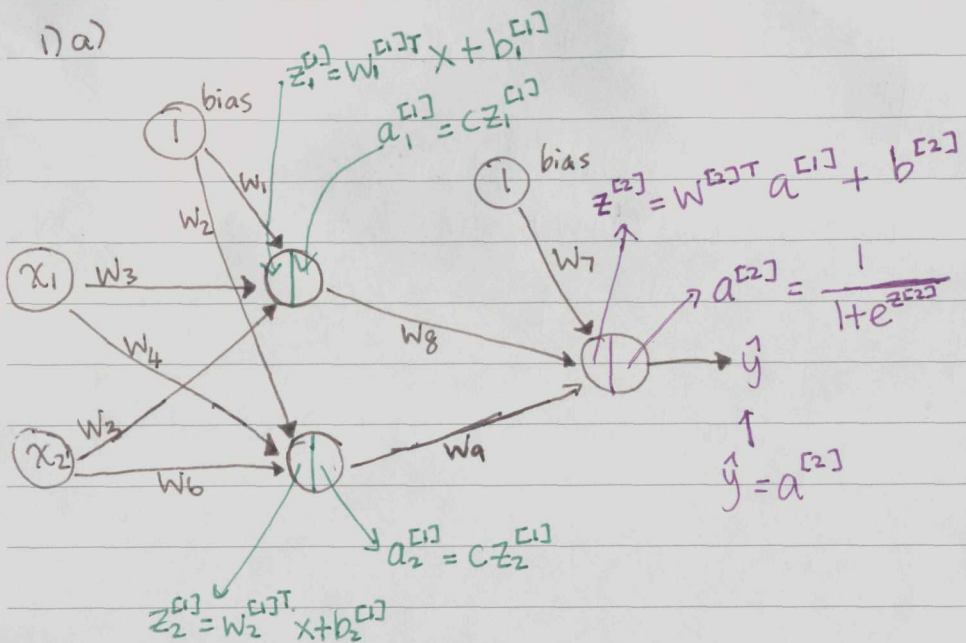 1) a)
z₁^[1] = W₁^[1]T x + b₁^[1]
bias
1
a₁^[1] = Cz₁^[1]
bias
1
z^[2] = W^[2]T a^[1] + b^[2]
W₁
W₂
x₁
W₃
W₇
a^[2] = 1/(1+e^z[2])
W₈
W₄
ŷ
W₃
x₂
W₆
W₉
ŷ = a^[2]
a₂^[1] = Cz₂^[1]
z₂^[1] = W₂^[1]T x + b₂^[1]